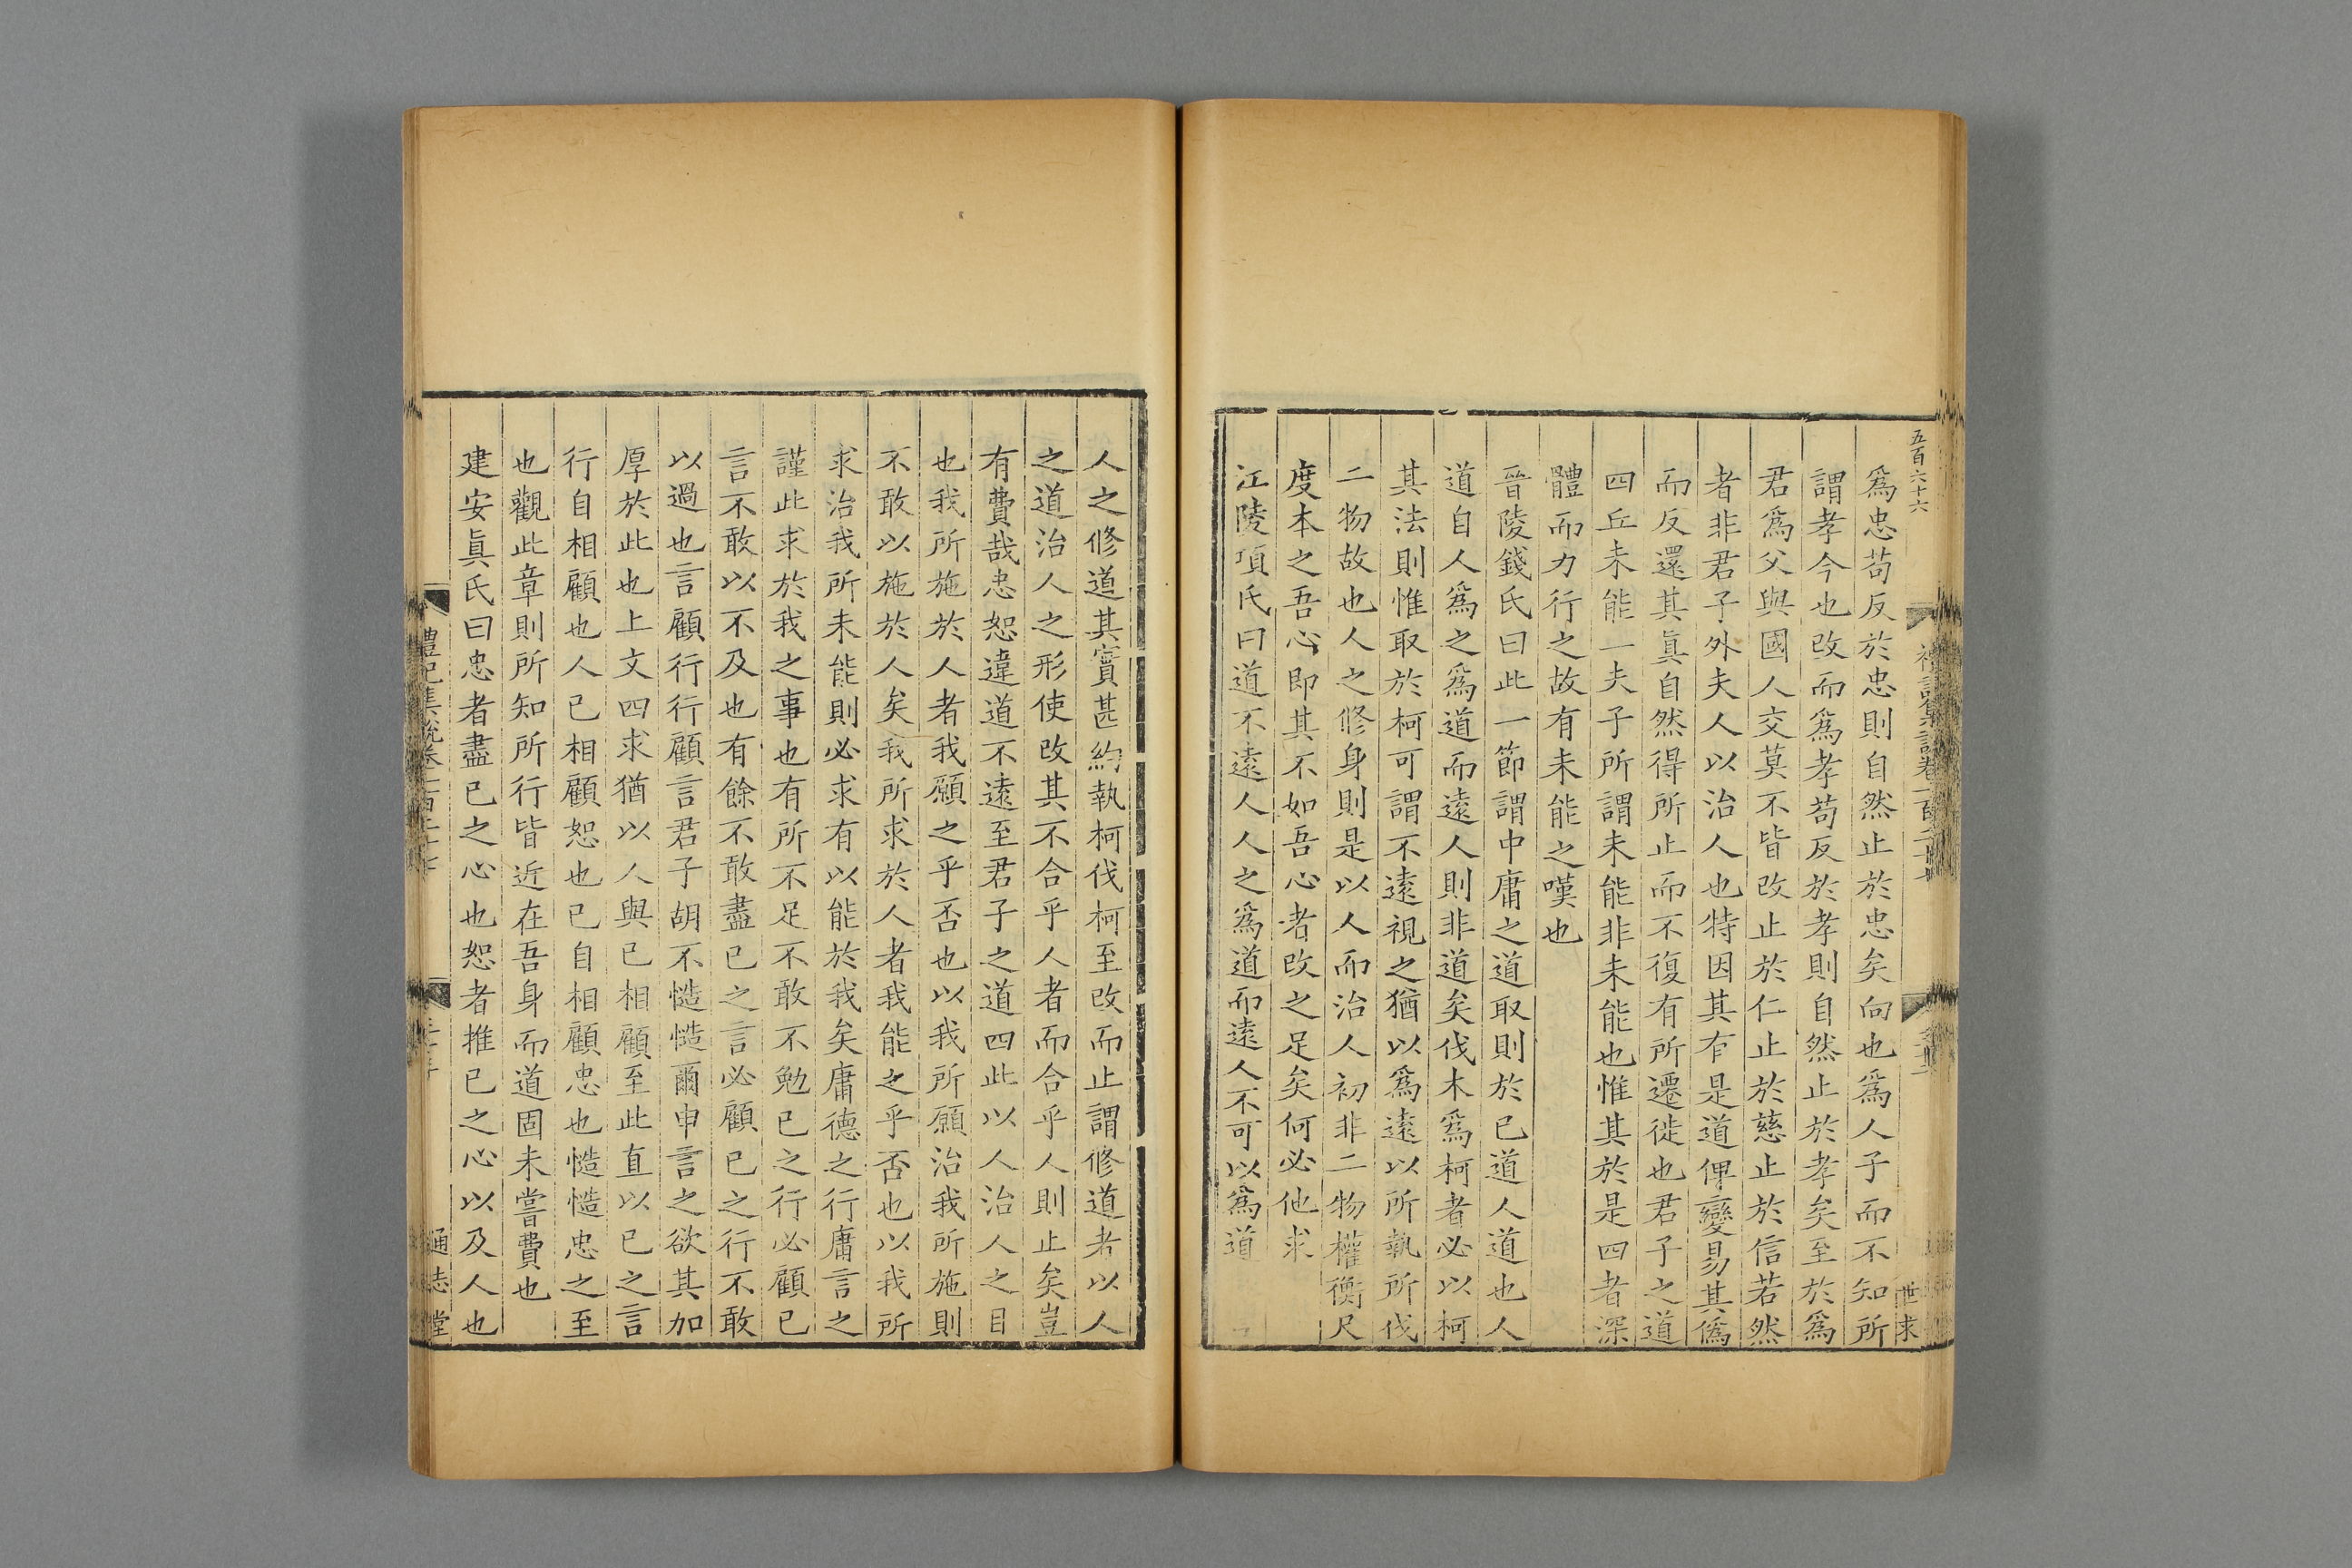 五百六十六
世求
爲忠苟反於忠則自然止於忠矣向也爲人子而不知所
謂孝今也改而爲孝苟反於孝則自然止於孝矣至於爲
君爲父與國人交莫不皆改止於仁止於慈止於信若然
者非君子外夫人以治人也特因其有是道俾變易其僞
而反還其眞自然得所止而不復有所遷徙也君子之道
四丘未能一夫子所謂未能非未能也惟其於是四者深
體而力行之故有未能之嘆也
晉陵錢氏曰此一節謂中庸之道取則於已道人道也人
道自人爲之爲道而遠人則非道矣伐木爲柯者必以柯
其法則惟取於柯可謂不遠視之猶以爲遠以所執所伐
二物故也人之修身則是以人而治人初非二物權衡尺
度本之吾心即其不如吾心者改之足矣何必他求
江陵項氏曰道不遠人人之爲道而遠人不可以爲道
人之修道其實甚約執柯伐柯至改而止謂修道者以人
之道治人之形使改其不合乎人者而合乎人則止矣豈
有費哉忠恕違道不遠至君子之道四此以人治人之目
也我所施於人者我願之乎否也以我所願治我所施則
不敢以施於人矣我所求於人者我能之乎否也以我所
求治我所未能則必求有以能於我矣庸德之行庸言之
謹此求於我之事也有所不足不敢不勉已之行必顧已
言不敢以不及也有餘不敢盡已之言必顧已之行不敢
以過也言顧行行顧言君子胡不慥慥爾申言之欲其加
厚於此也上文四求猶以人與已相顧至此直以已之言
行自相顧也人已相顧恕也已自相顧忠也慥慥忠之至
也觀此章則所知所行皆近在吾身而道固未嘗費也
建安眞氏曰忠者盡已之心也恕者推已之心以及人也
禮記集說卷一百二十七
通志堂